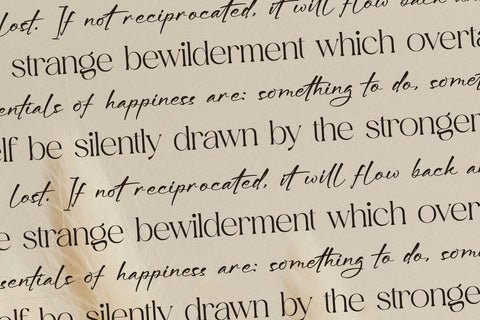 lost. If not reciprocated, it will flow back
strange bewilderment which overta
entials of happiness are: something to do, somet
elf be silently drawn by the stronger
lost. If not reciprocated, it will flow back a
e strange bewilderment which over
sentials of happiness are: something to do, som
lf be silently drawn by the stronge